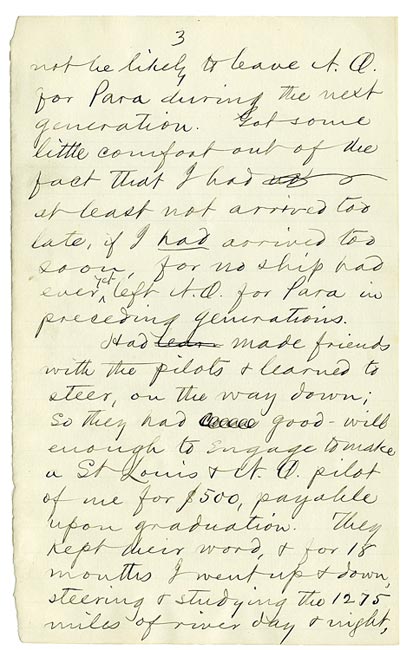 3
not be likely to leave N. O.
for Para during the next
generation. Got some
little comfort out of the
fact that I had at
at least not arrived too
late, if I had arrived too
soon, for no ship had
ever yet left N. O. for Para in
preceding generations.
Had lear made friends
with the pilots & learned to
steer, on the way down;
so they had good-will
enough to engage to make
a St Louis & N. O. pilot
of me for $500, payable
upon graduation. They
kept their word, & for 18
months I went up & down,
steering & studying the 1275
miles of river day & night,